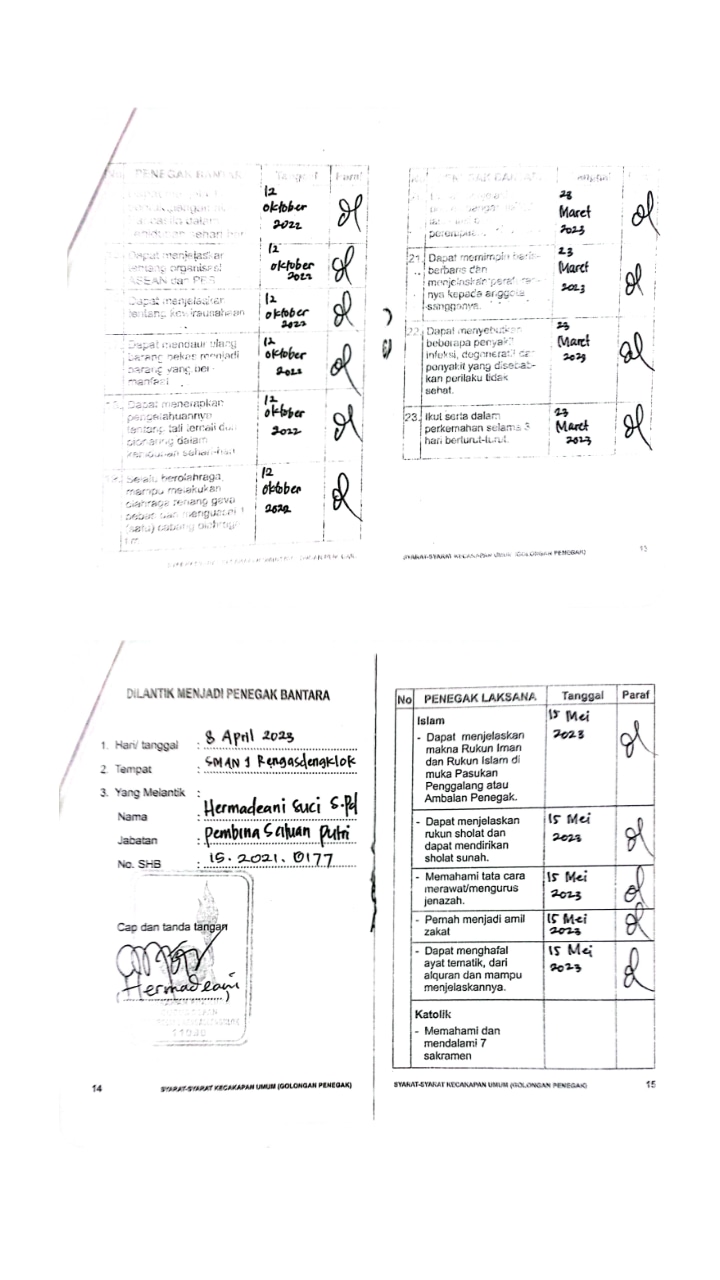 No PENEGAK BANTARA Tanggal Paraf
12 oktober 2022
dalam
Dapat menjelaskan
tentang organisasi
ASEAN dan PBB
12 oktober 2022
Dapat menjelaskan
tentang kewirausahaan
12 oktober 2022
Dapat mendaur ulang
barang bekas menjadi
barang yang ber-
manfaat
12 oktober 2022
Dapat menerapkan
pengetahuannya
tentang tali temali dan
pionering dalam
kehidupan sehari-hari
12 oktober 2022
Selalu berolahraga,
mampu melakukan
olahraga renang gaya
bebas dan menguasai 1
(satu) cabang olahraga
12 oktober 2022
Tanggal
23 Maret 2023
21. Dapat memimpin baris-
berbaris dan
menjelaskan
nya kepada anggota
sangganya.
23 Maret 2023
22. Dapat menyebutkan
beberapa penyakit
infeksi, degeneratif
penyakit yang disebab-
kan perilaku tidak
sehat.
23 Maret 2023
23. Ikut serta dalam
perkemahan selama 3
hari berturut-turut.
23 Maret 2023
SYARAT-SYARAT KECAKAPAN UMUM (GOLONGAN PENEGAK) 13
DILANTIK MENJADI PENEGAK BANTARA
1. Hari/ tanggal : 8 April 2023
2. Tempat : SMAN 1 Rengasdengklok
3. Yang Melantik :
Nama : Hermadeani Suci S.Pd
Jabatan : Pembina Satuan Putri
No. SHB : 15.2021.0177
Cap dan tanda tangan
(Hermadeani)
11046
14 SYARAT-SYARAT KECAKAPAN UMUM (GOLONGAN PENEGAK)
No PENEGAK LAKSANA Tanggal Paraf
Islam
- Dapat menjelaskan
makna Rukun Iman
dan Rukun Islam di
muka Pasukan
Penggalang atau
Ambalan Penegak.
15 Mei 2023
- Dapat menjelaskan
rukun sholat dan
dapat mendirikan
sholat sunah.
15 Mei 2023
- Memahami tata cara
merawat/mengurus
jenazah.
15 Mei 2023
- Pernah menjadi amil
zakat
15 Mei 2023
- Dapat menghafal
ayat tematik, dari
alquran dan mampu
menjelaskannya.
15 Mei 2023
Katolik
- Memahami dan
mendalami 7
sakramen
SYARAT-SYARAT KECAKAPAN UMUM (GOLONGAN PENEGAK) 15